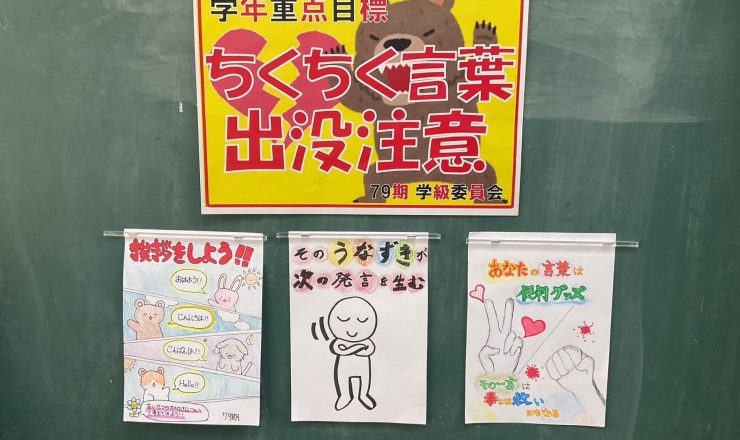 学年重点目標
ちくちく言葉
出没注意
79期 学級委員会
挨拶をしよう!!
おはよう!!
こんにちは!!
こんばんは!!
Hello!!
79期
そのうなずきが
次の発言を生む
あなたの言葉は
便利グッズ
その一言は
救い
にもなる